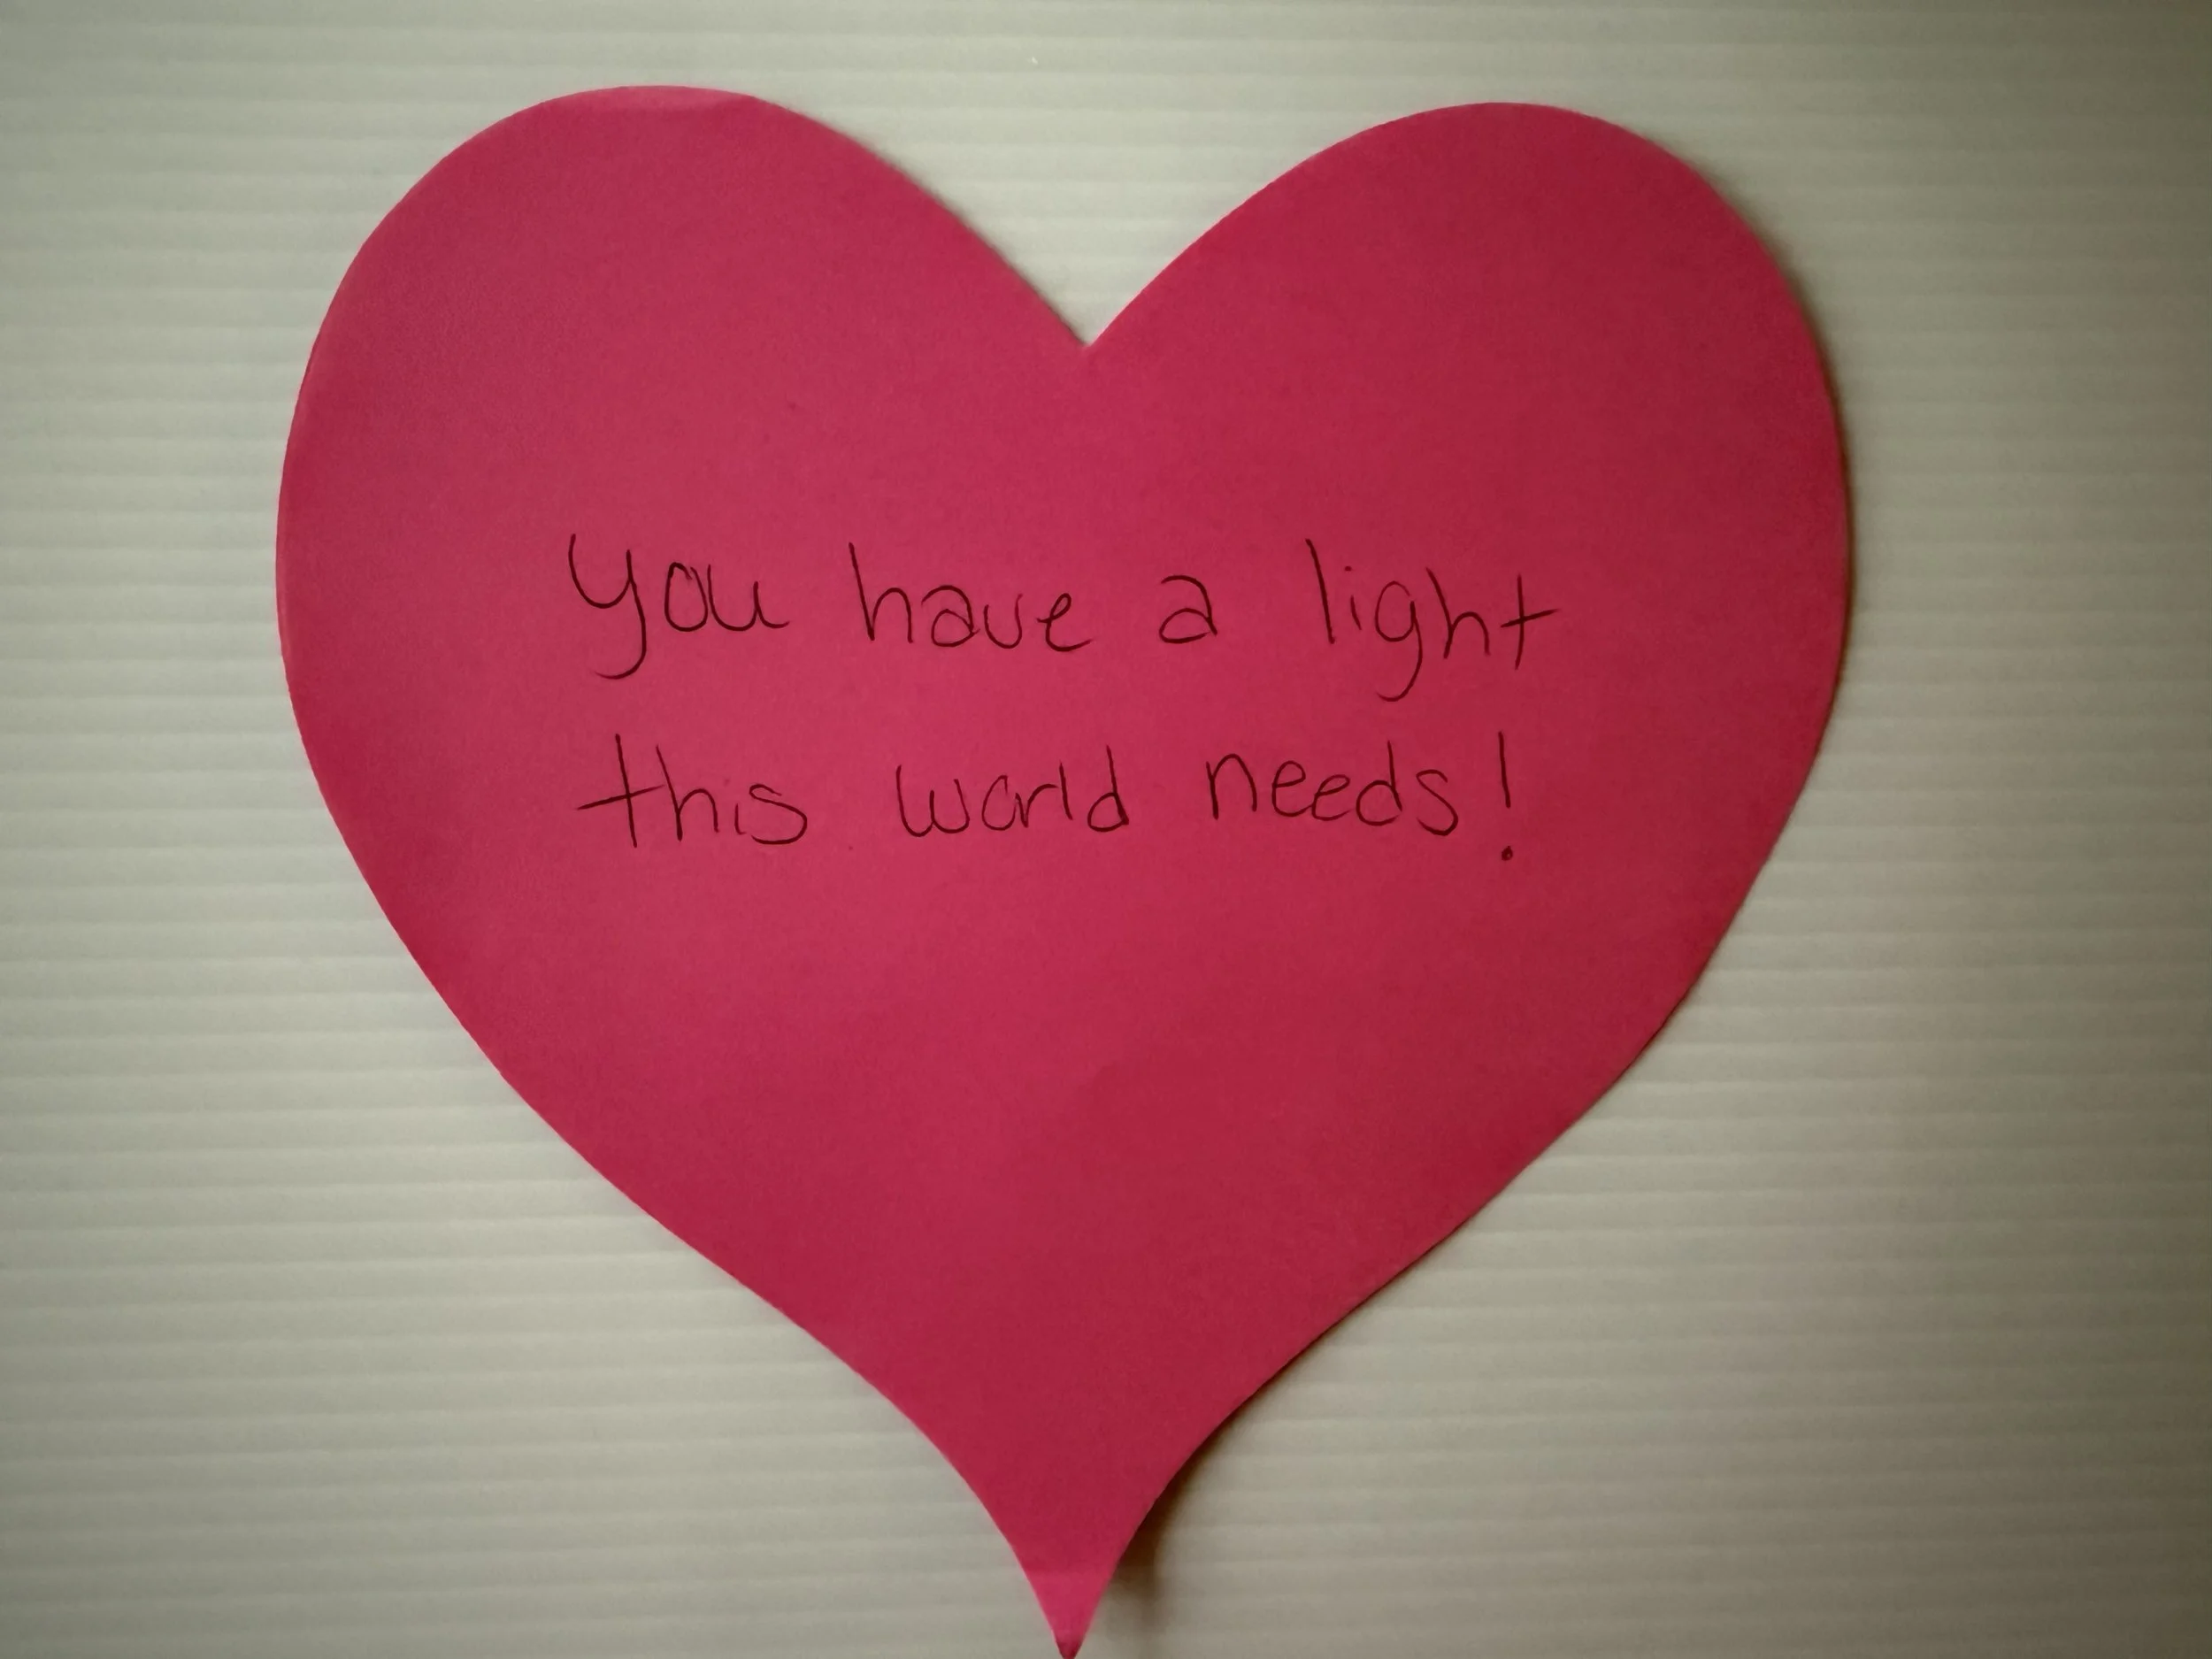 You have a light
this world needs!